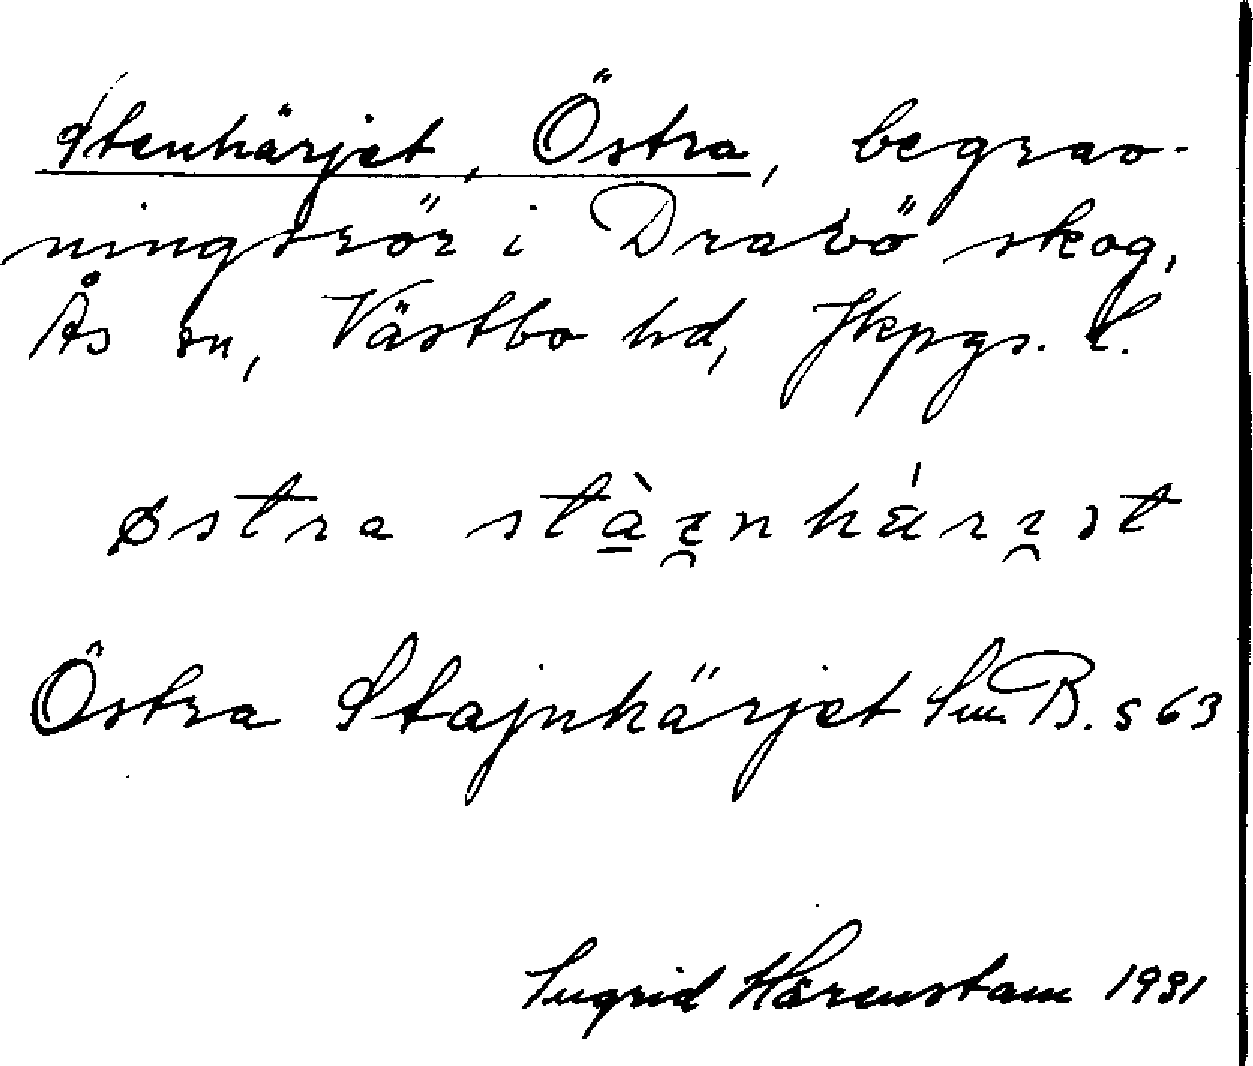 Stenhärjet, Östra, begrav-
ningsrör i Dravö skog,
Ås sn, Västbo hd, Jkpgs. l.
østra
Östra Stajnhärjet Sm B. s 63
Ingrid Härenstam 1931